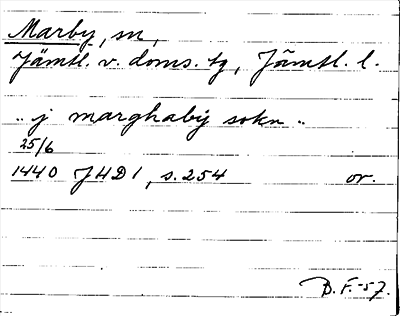 Marby, sn,
Jämtl. v. doms. tg, Jämtl. l.
.. j marghabÿ sokn ..
25/6
1440 JHD 1, s. 254 or.
B. F. -57.